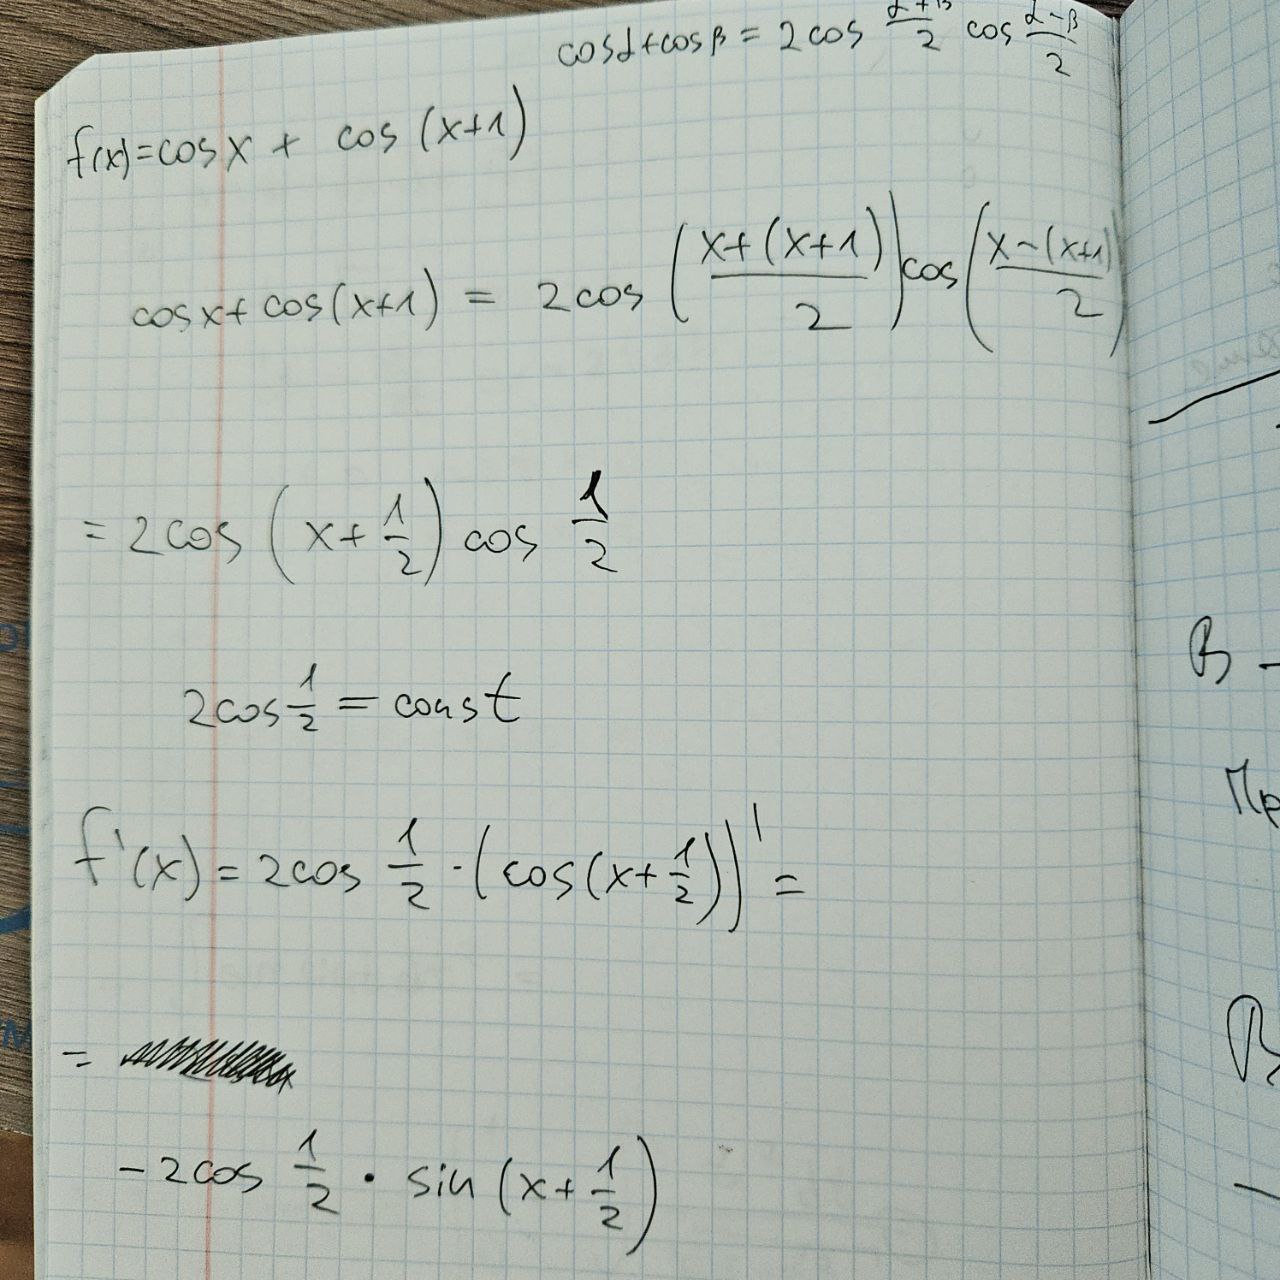 cosα+cosβ = 2cos (α+β)/2 cos (α-β)/2
f(x)=cosx + cos (x+1)
cosx+cos(x+1) = 2cos ((x+(x+1))/2) cos ((x-(x+1))/2)
= 2cos (x+1/2) cos 1/2
2cos 1/2 = const
f'(x) = 2cos 1/2 · (cos(x+1/2))' =
=
-2cos 1/2 · sin (x+1/2)
В -